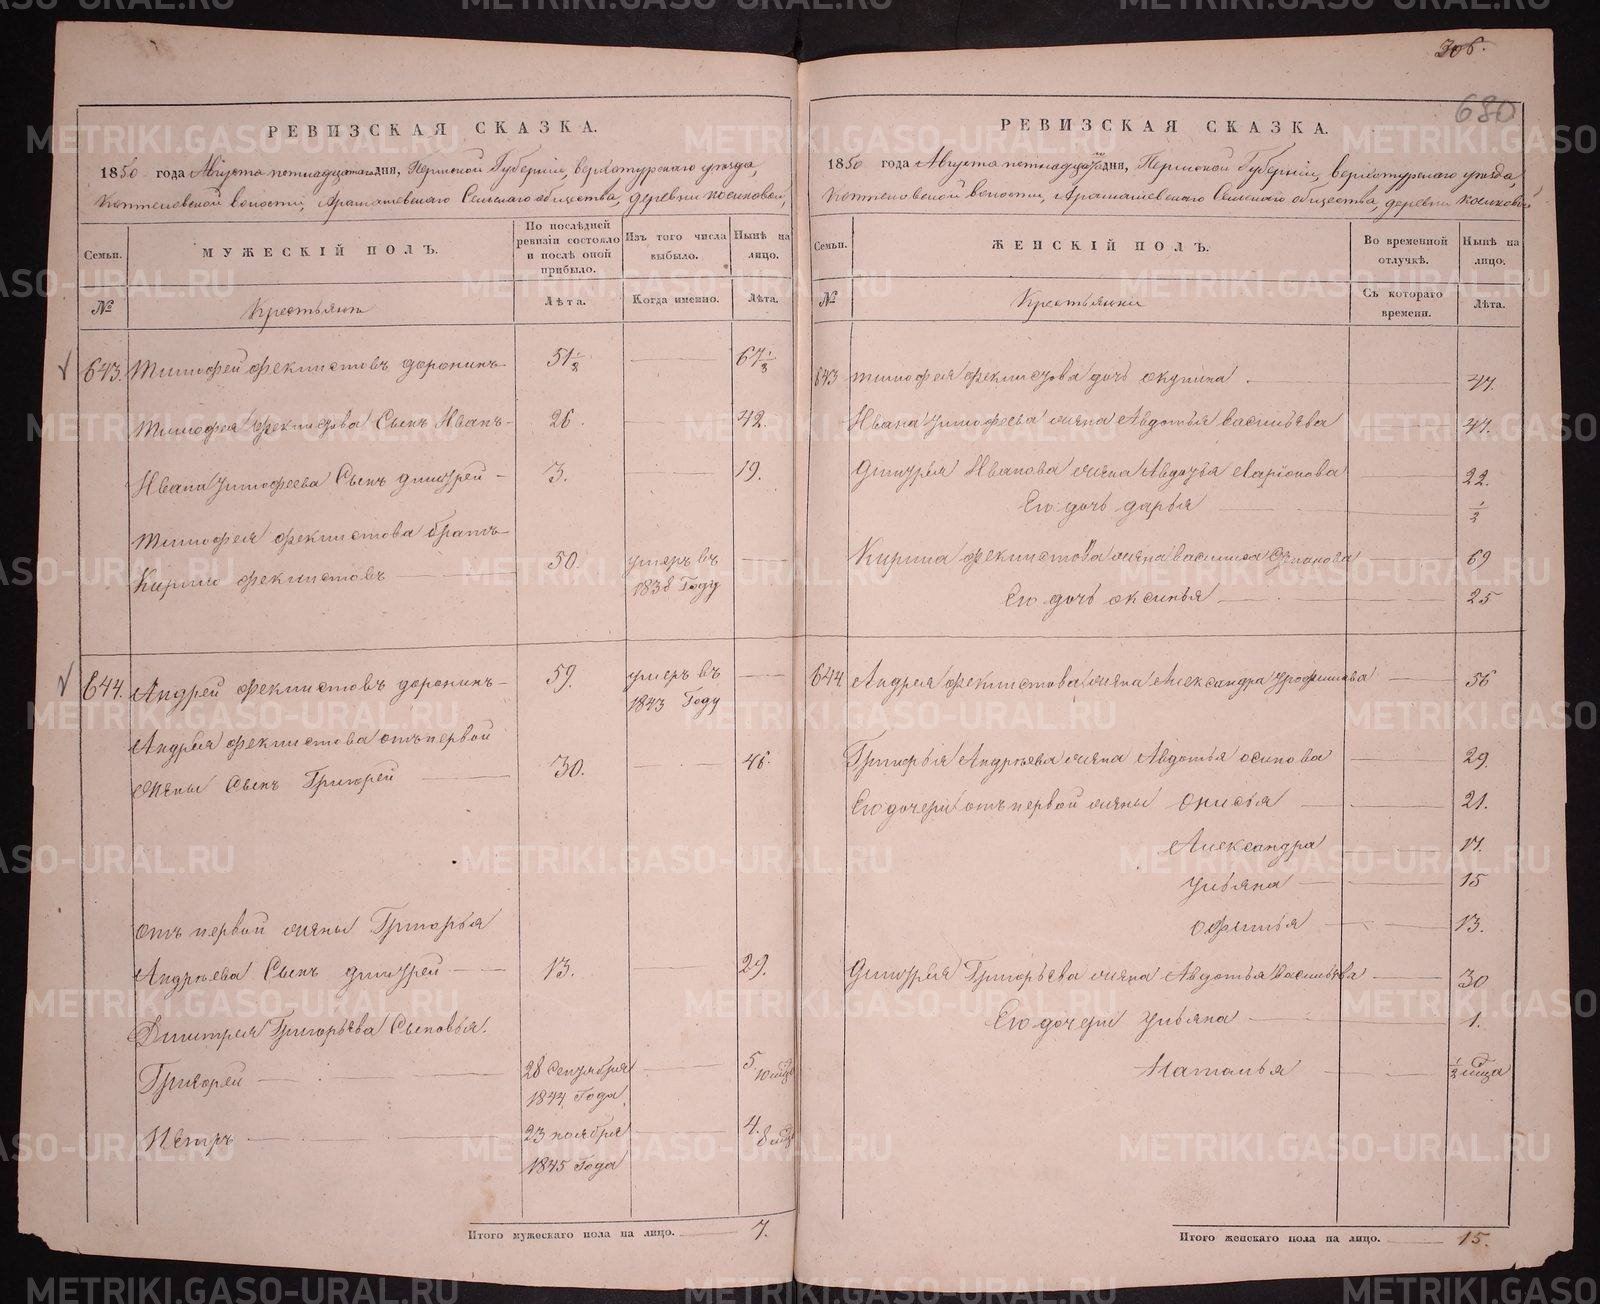 306.
680
РЕВИЗСКАЯ СКАЗКА.
1850 года Августа пятнадцатого дня, Пермской Губерніи, верхотурскаго уѣзда,
Коптеловской волости, Арамашевскаго Сельскаго общества, деревни косиковой,
Семьи.
МУЖЕСКІЙ ПОЛЪ.
По послѣдней ревизіи состояло и послѣ оной прибыло.
Изъ того числа выбыло.
Нынѣ на лицо.
№
Крестьяне
Лѣта.
Когда именно.
Лѣта.
643. Тимофей феклистовъ доронинъ 51½ 67½
Тимофея феклистова Сынъ Иванъ 26. 42.
Ивана тимофеева Сынъ дмитрей 3. 19.
Тимофея феклистова братъ
Кирило феклистовъ 50. умеръ въ 1838 Году
644. Андрей феклистовъ доронинъ 59. умеръ въ 1843 Году
Андрея феклистова отъ первой
жены Сынъ Григорей 30. 46.
отъ первой жены Григорья
Андреева Сынъ дмитрей 13. 29.
Дмитрея Григорьева Сыновья.
Григорей 28 Сентября 1844 Года. 5 10 мцв
Петръ 23 ноября 1845 Года 4. 8 мцв
Итого мужескаго пола на лицо. 7.
РЕВИЗСКАЯ СКАЗКА.
1850 года Августа пятнадцатого дня, Пермской Губерніи, верхотурскаго уѣзда,
Коптеловской волости, Арамашевскаго Сельскаго общества, деревни косиковой
Семьи.
ЖЕНСКІЙ ПОЛЪ.
Во временной отлучкѣ.
Нынѣ на лицо.
№
Крестьянки
Съ котораго времени.
Лѣта.
643 тимофея феклистова дочь окулина 47.
Ивана тимофеева жена Авдотья васильева 47.
Дмитрья Иванова жена Авдотья Ларіонова 22.
Его дочь дарья ½
Кирила феклистова жена василиса Степанова 69
Его дочь оксинья 25
644. Андрея феклистова жена Александра трофимова 56
Григорья Андреева жена Авдотья осипова 29.
Его дочери отъ первой жены Онисья 21.
Александра 17.
Ульяна 15
Офимья 13.
Дмитрея Григорьева жена Авдотья Васильева 30
Его дочери ульяна 1.
Наталья ½ мцца
Итого женскаго пола на лицо. 15.
METRIKI.GASO-URAL.RU